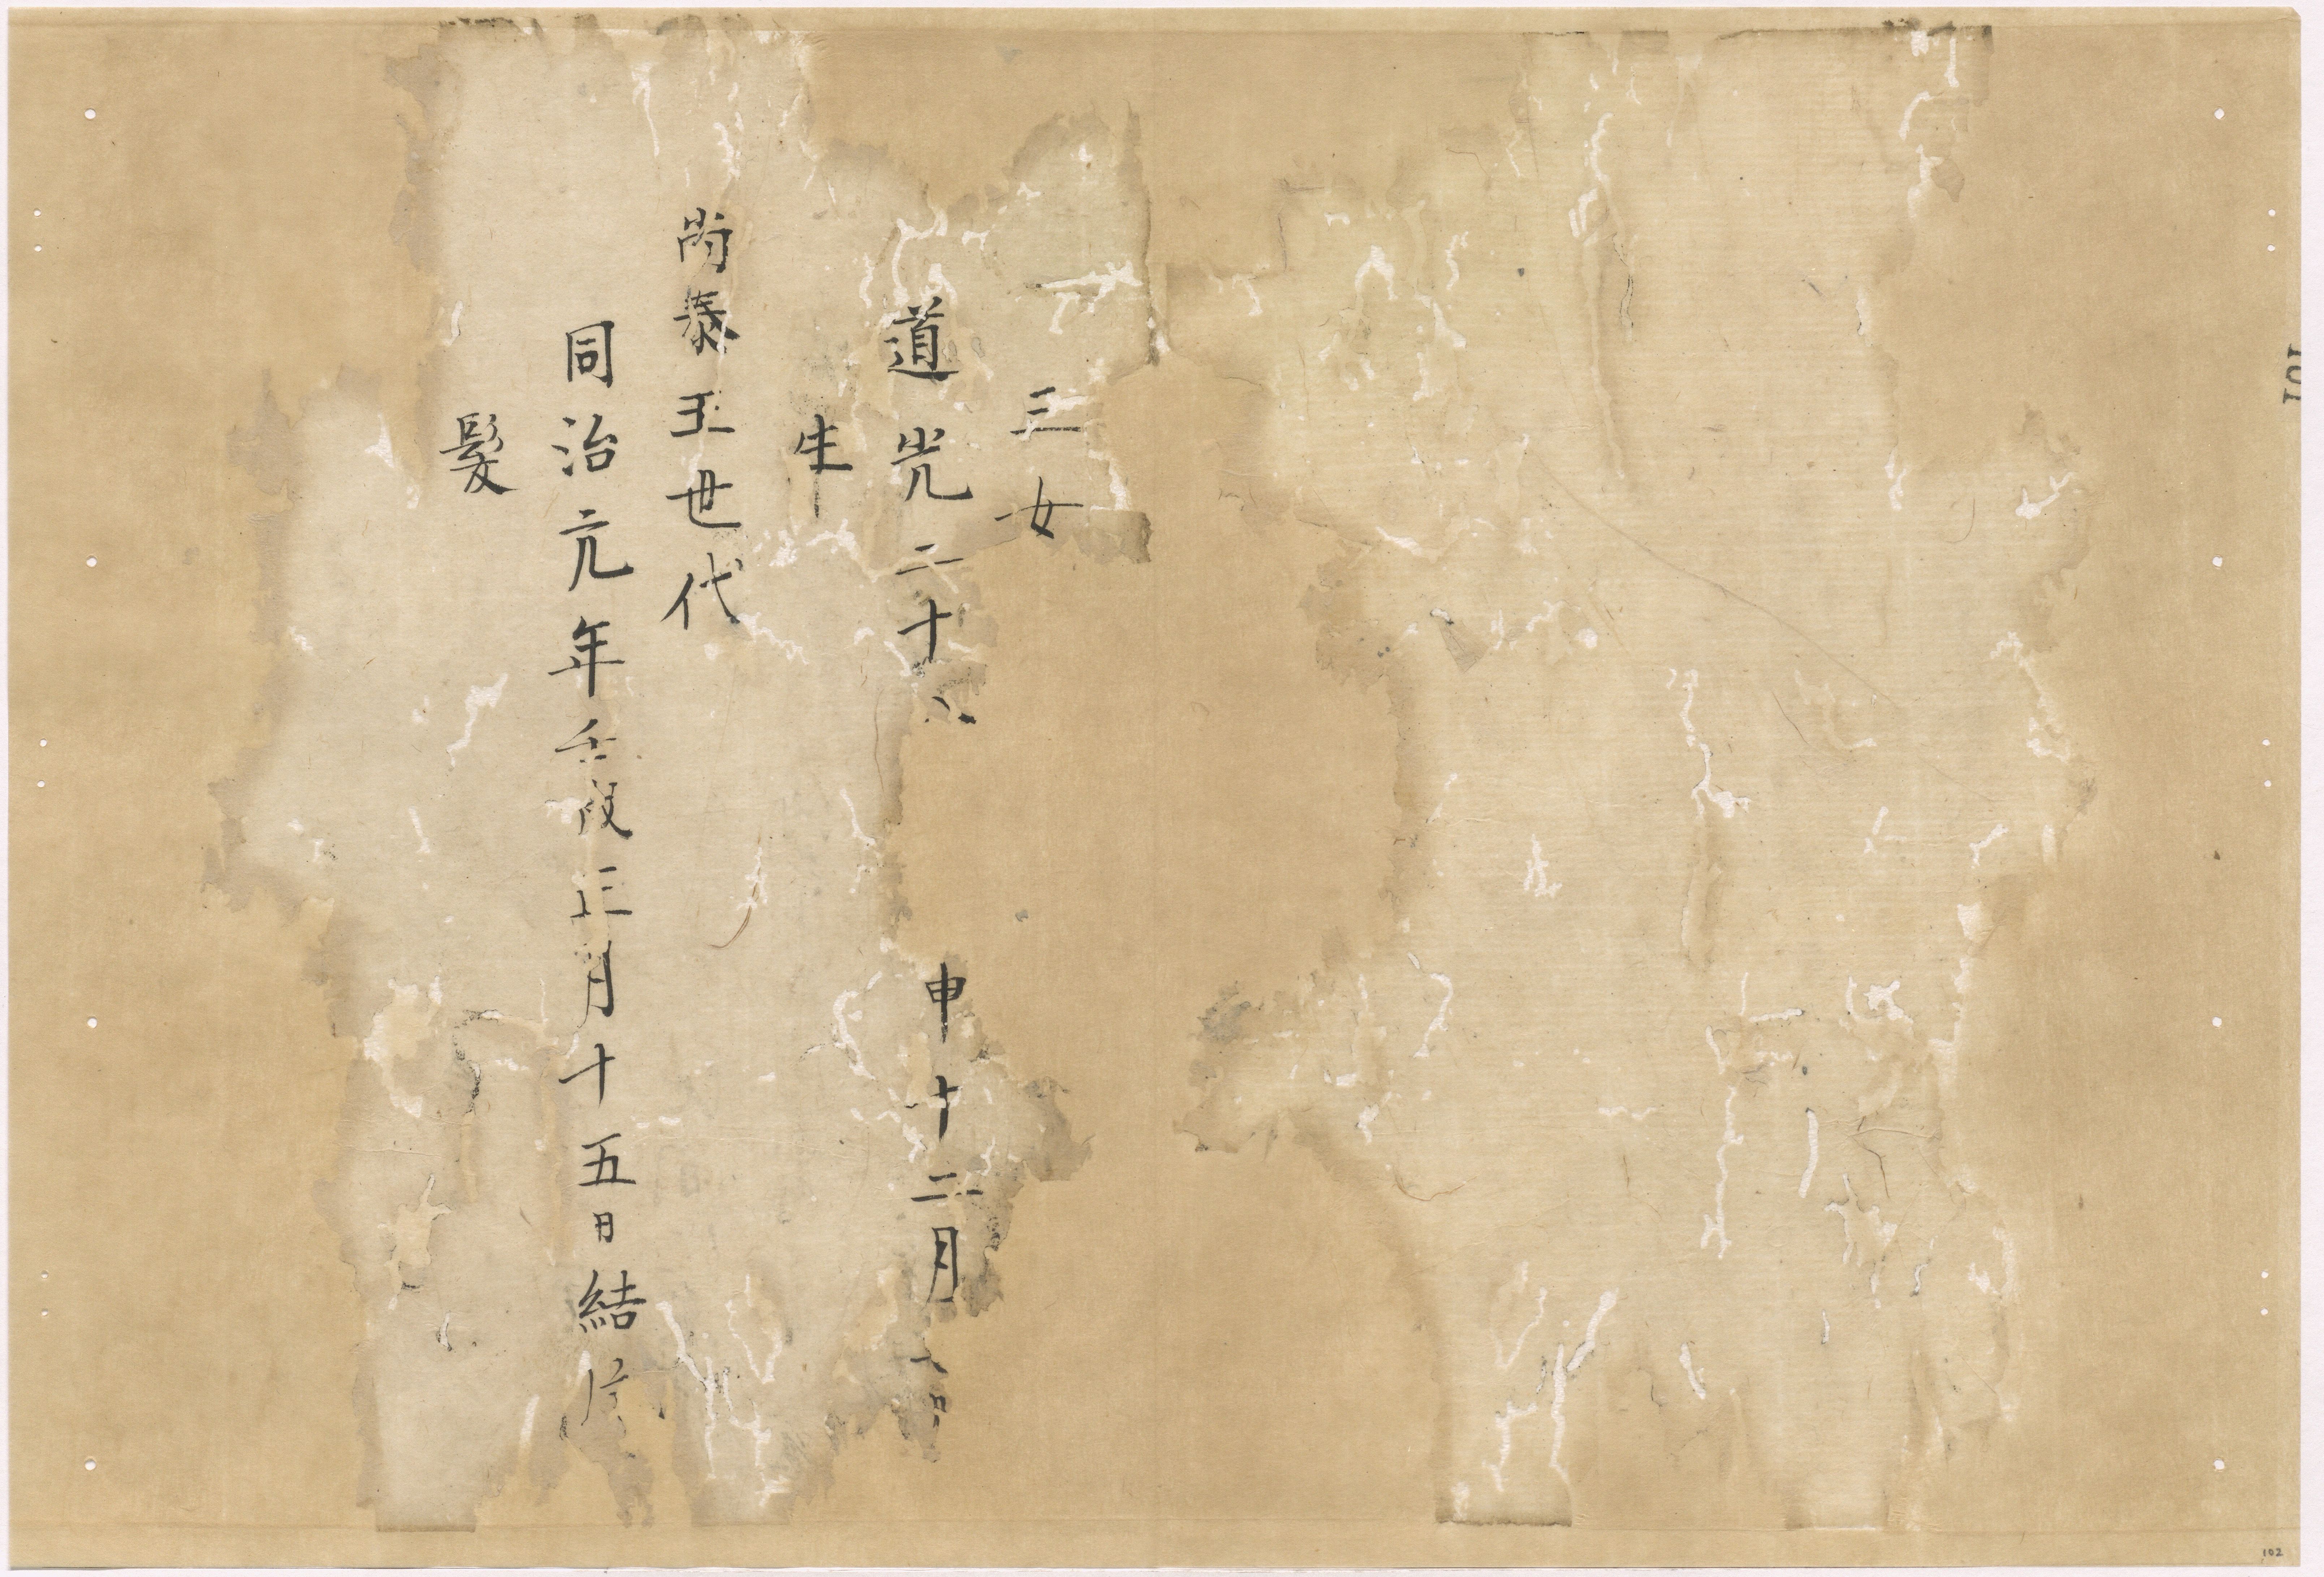 三女
道光二十八申十二月日
生
尚泰王世代
同治元年壬戌正月十五日結
髪
101
102